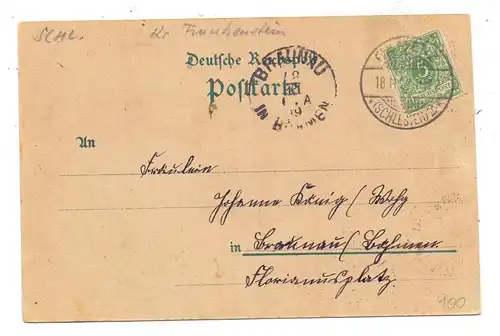 Kr Frankenstein
Deutsche Reichspost
Postkarte
BRAUNAU
IN BÖHMEN
5
18
(SCHLESIEN)
An
Fräulein
Johanna König
in Braunau/Böhmen.
Florianusplatz.
900